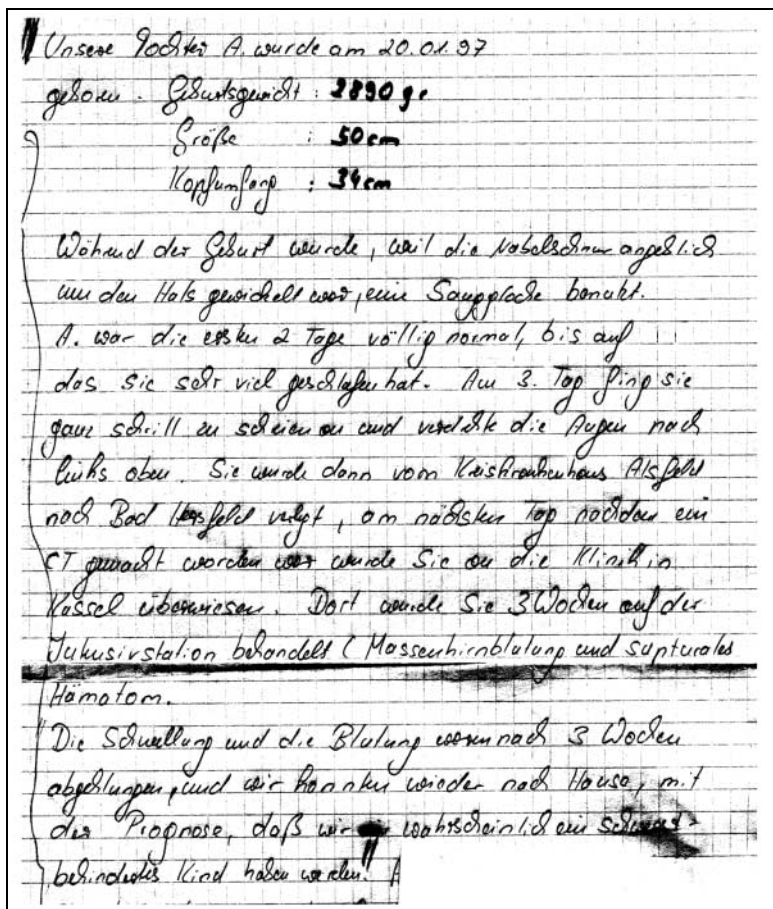 Unsere Tochter A. wurde am 20.01.97
geboren. Geburtsgewicht : 2890 gr
Größe : 50 cm
Kopfumfang : 34 cm
Während der Geburt wurde, weil die Nabelschnur angeblich
um den Hals gewickelt war, eine Saugglocke benutzt.
A. war die ersten 2 Tage völlig normal, bis auf
das sie sehr viel geschlafen hat. Am 3. Tag fing sie
ganz schrill zu schreien an und verdrehte die Augen nach
links oben. Sie wurde dann vom Kreiskrankenhaus Alsfeld
nach Bad Hersfeld verlegt, am nächsten Tag nachdem ein
CT gemacht worden war wurde Sie an die Klinik in
Kassel überwiesen. Dort wurde Sie 3 Wochen auf der
Intensivstation behandelt ( Massenhirnblutung und supturales
Hämatom.
Die Schwellung und die Blutung waren nach 3 Wochen
abgeklungen, und wir konnten wieder nach Hause, mit
der Prognose, daß wir wahrscheinlich ein schwerst-
behindertes Kind haben werden.